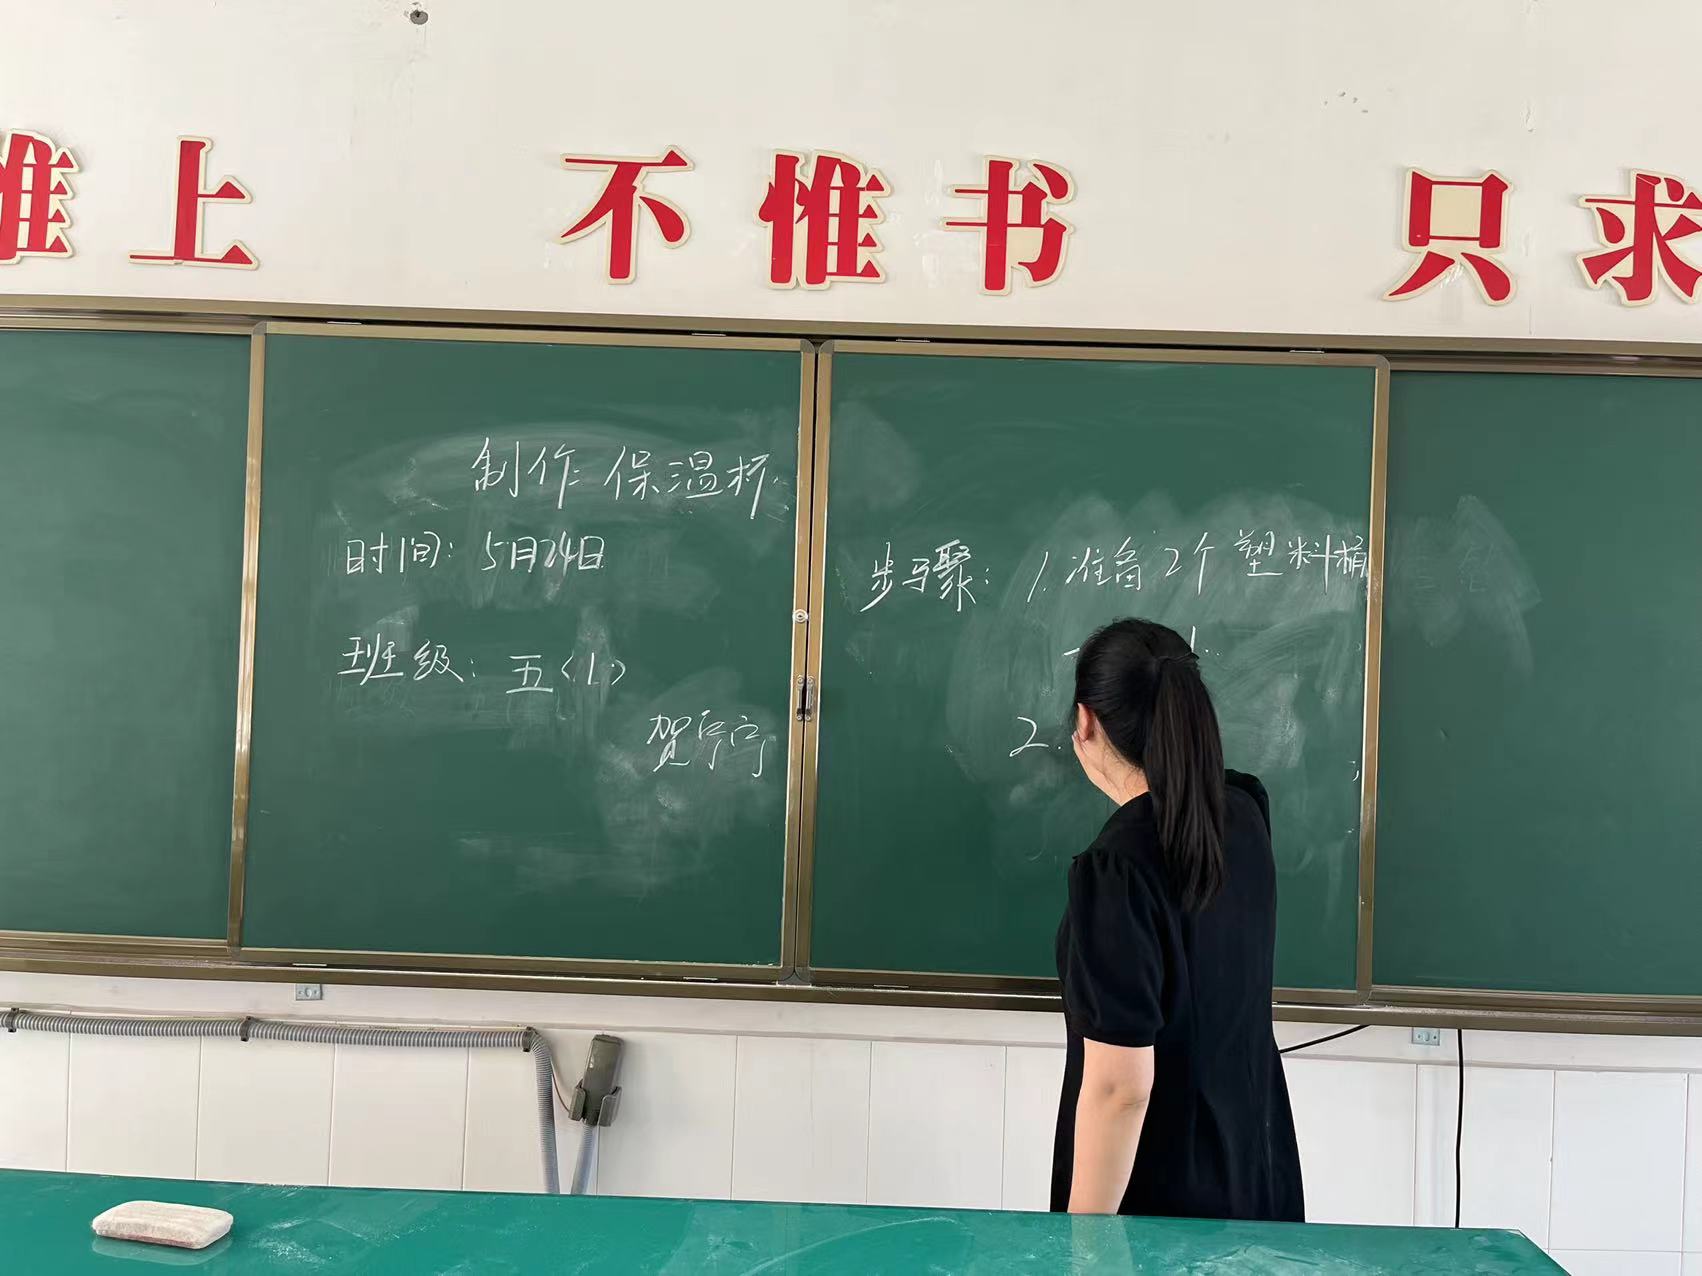 惟上 不惟书 只求
制作保温杯
时间：5月24日
班级：五〈1〉
贺宁宁
步骤：1.准备2个塑料桶
2.